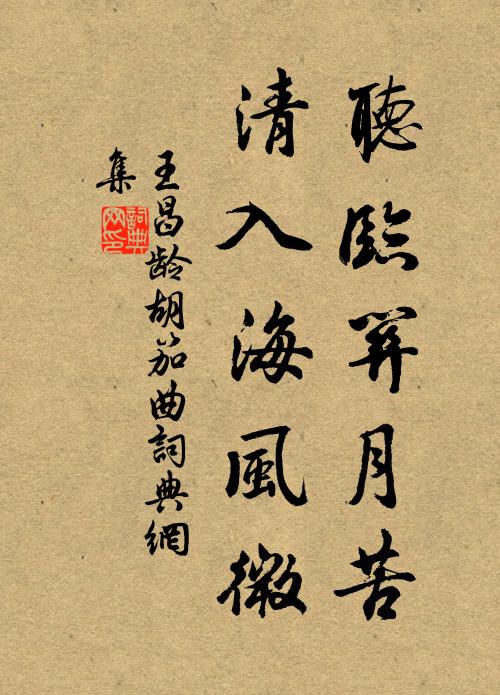 聽臨關月苦
清入海風微
王昌齡胡笳曲詞典網
集
詞典
网印